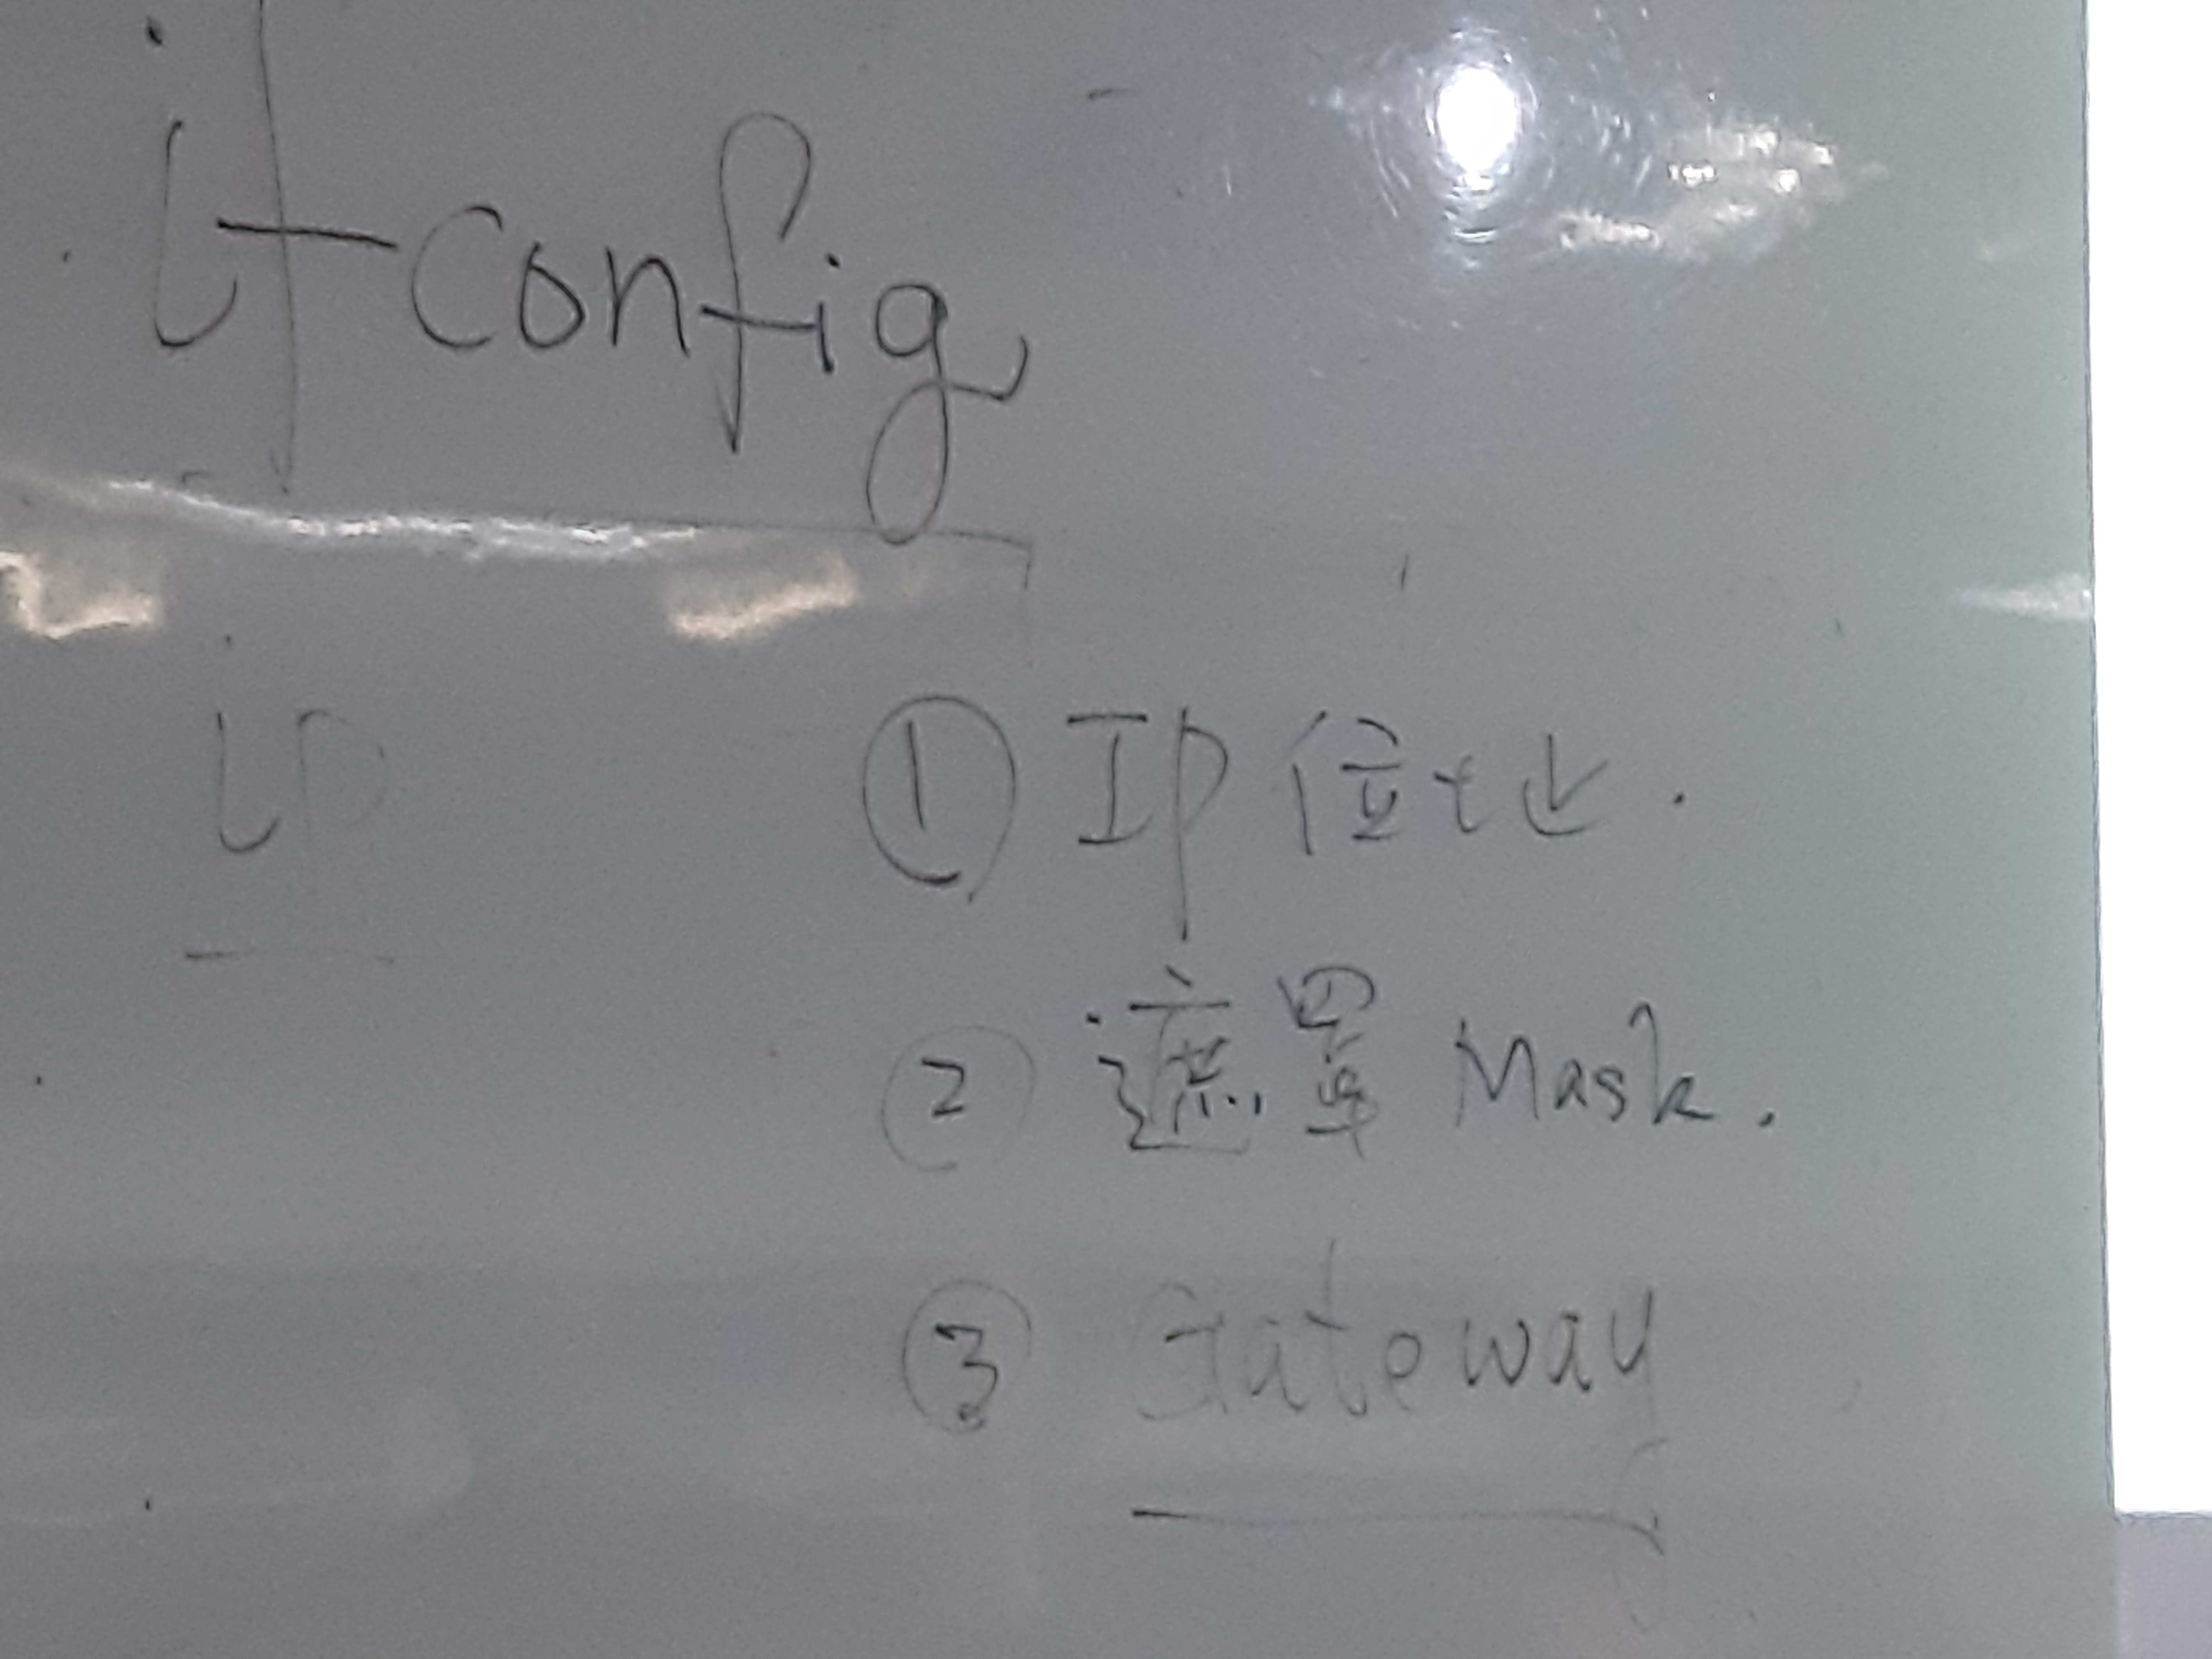 ifconfig
ip
① IP 位址.
② 遮罩 Mask.
③ Gateway